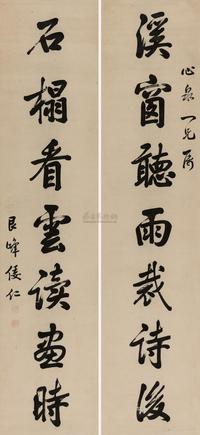 心泉一兄屬
溪窗聽雨裁詩後
石榻看雲读畫時
艮峰倭仁